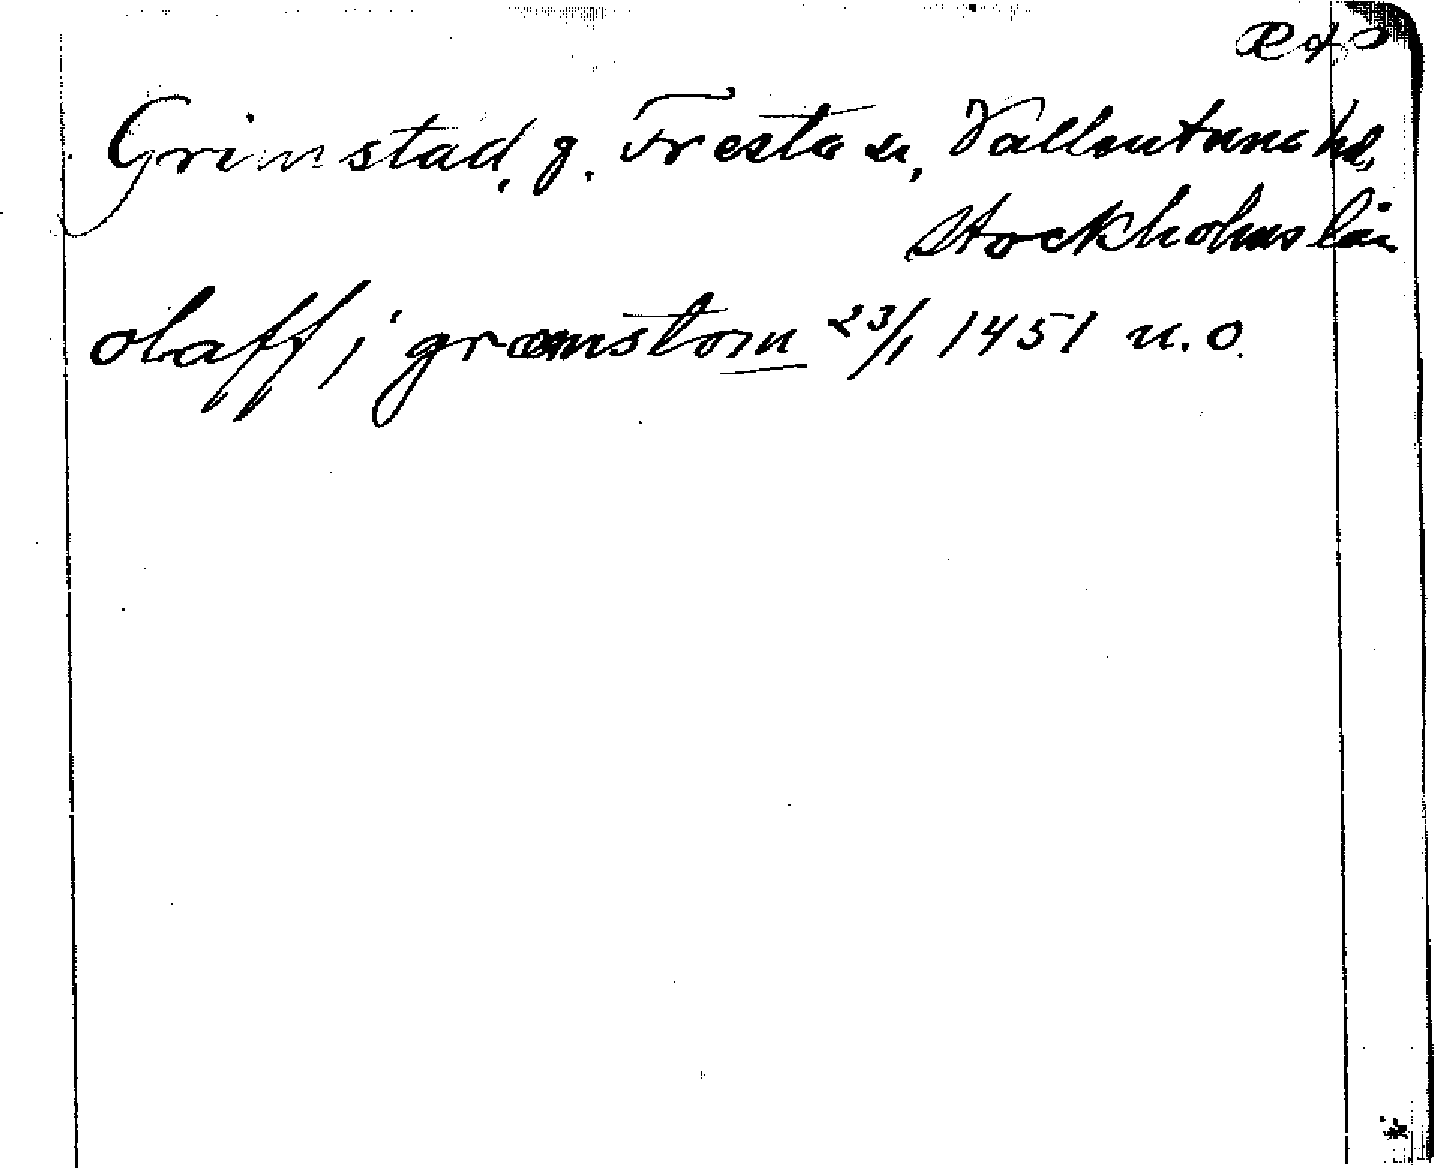 Grimstad, g. Fresta sn, Vallentuna hd,
Stockholms län
olaff i græmstom 23/1 1451 n.o.